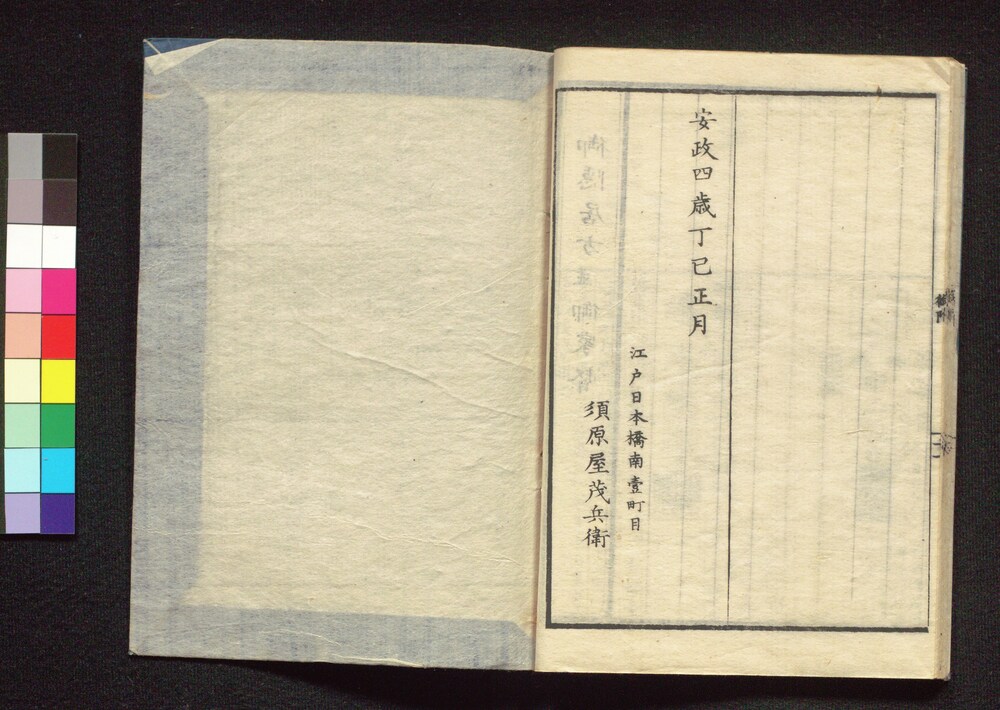 安政四歳丁巳正月
江戸日本橋南壹町目
須原屋茂兵衛